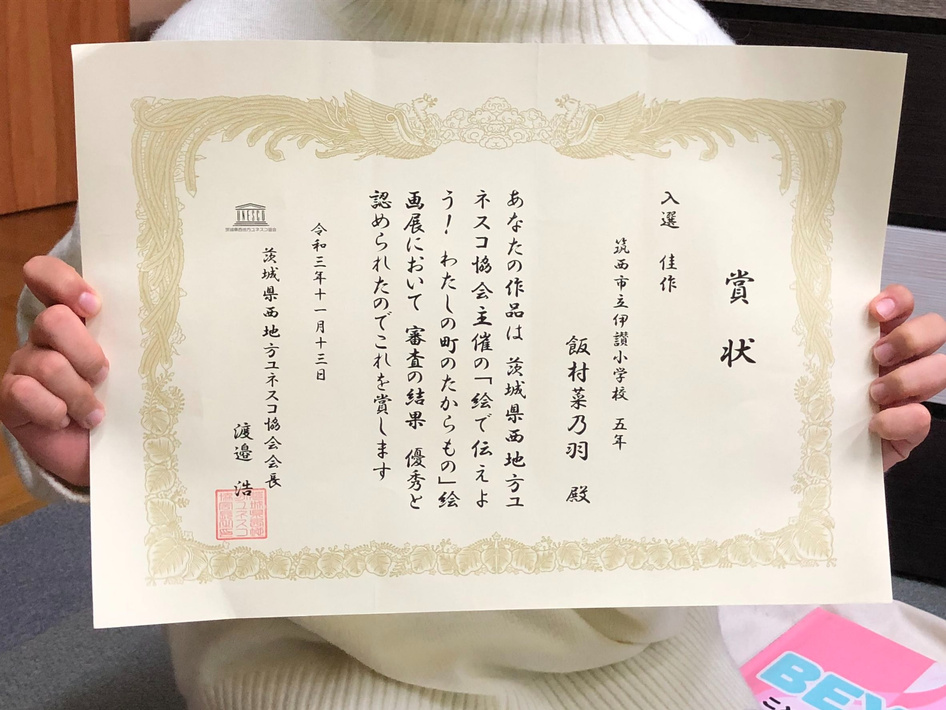 賞状
入選 佳作
筑西市立伊讃小学校 五年
飯村菜乃羽 殿
あなたの作品は 茨城県西地方ユ
ネスコ協会主催の「絵で伝えよ
う! わたしの町のたからもの」絵
画展において 審査の結果 優秀と
認められたのでこれを賞します
令和三年十一月十三日
UNESCO
茨城県西地方ユネスコ協会
茨城県西地方ユネスコ協会会長
渡邉 浩